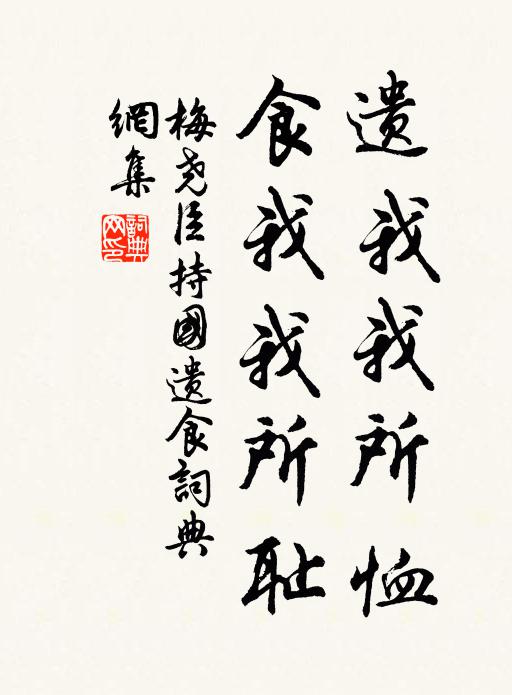 遗我我所恤
食我我所耻
梅尧臣持國遗食詞典
網集
詞典
网印